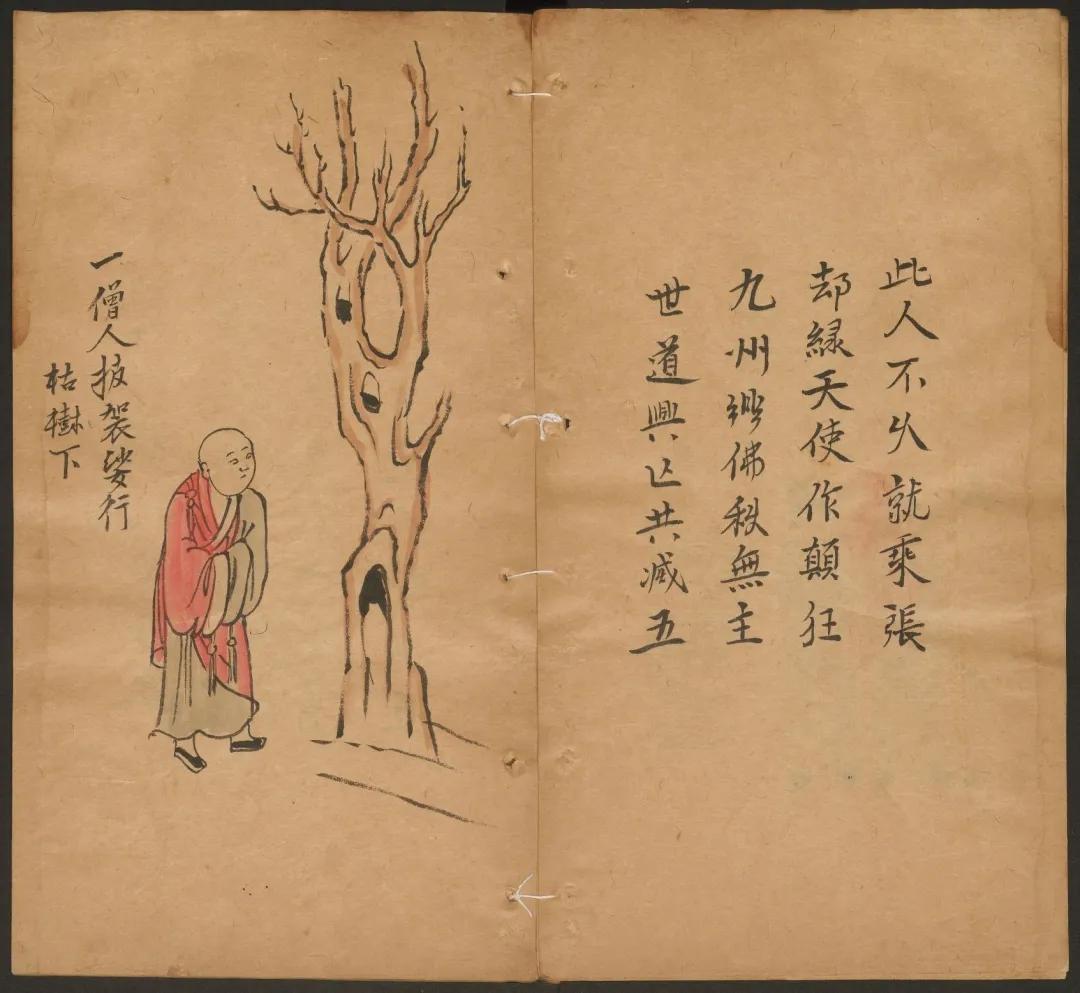 此人不乆就乘張
却緑天使作顛狂
九州佛秩無主
世道興亡共减五
一僧人披袈裟行
枯樹下